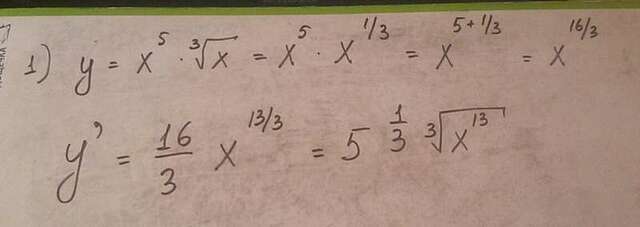 1) y = x⁵ · ∛x = x⁵ · x^{1/3} = x^{5+1/3} = x^{16/3}
y' = 16/3 x^{13/3} = 5 1/3 ∛x¹³